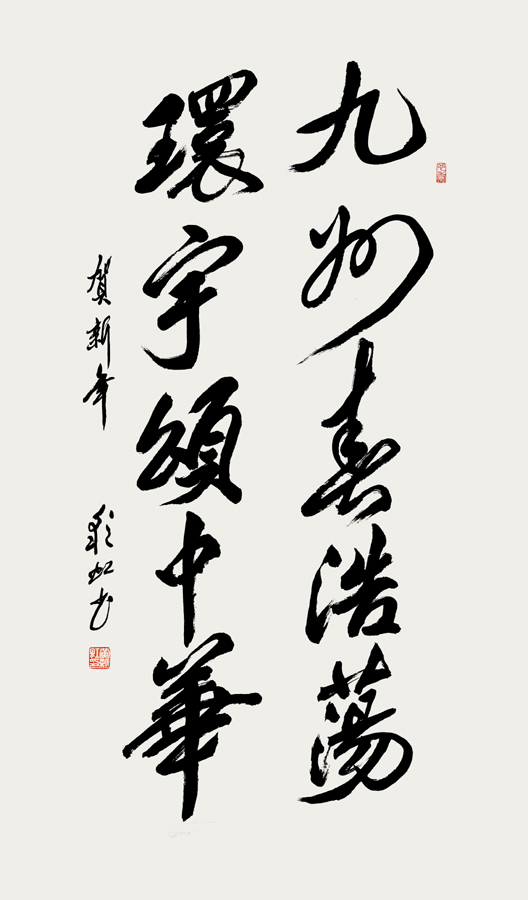 九州春浩蕩
環宇頌中華
賀新年
虹书